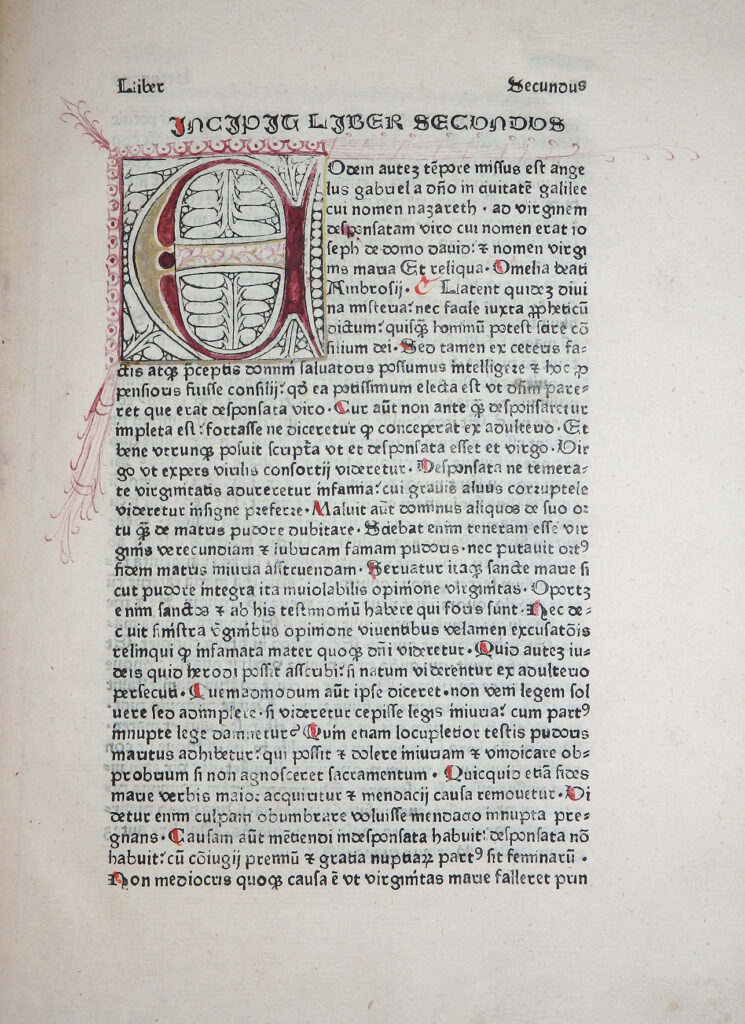 Liber Secundus
INCIPIT LIBER SECUNDUS
EOdem autez tēpore missus est ange
lus gabriel a dño in ciuitatē galilee
cui nomen nazareth · ad virginem
desponsatam viro cui nomen erat io
seph de domo dauid: ⁊ nomen virgi
nis maria Et reliqua · Omelia beati
Ambrosij · Latent quidez diui
na misteria: nec facile iuxta ꝓpheticū
dictum: quisq̄ʒ hominū potest scire cō
silium dei · Sed tamen ex ceteris fa⸗
ctis atqʒ p̄ceptis domini saluatoris possumus intelligere ⁊ hoc ꝓ
pensioris fuisse consilij: qd̄ ea potissimum electa est vt dn̄m pare⸗
ret que erat desponsata viro · Cur aūt non ante q̄ʒ desponsaretur
impleta est: fortasse ne diceretur ꝙ conceperat ex adulterio · Et
bene vtrunqʒ posuit scriptā vt et desponsata esset et virgo · Vir
go vt expers virilis consortij videretur · Desponsata ne temera⸗
te virginitatis adureretur infamia: cui grauis aluus corruptele
videretur insigne preferre · Maluit aūt dominus aliquos de suo or
tu q̄ʒ de matris pudore dubitare · Sciebat enim teneram esse vir
ginis verecundiam ⁊ lubricam famam pudoris · nec putauit ortꝰ
fidem matris iniuria asstruendam · Seruatur itaqʒ sancte marie si
cut pudore integra ita inuiolabilis opinione virginitas · Oportʒ
enim sanctos ⁊ ab his testimoniū habere qui foris sunt · Nec de⸗
cuit sinistra v̄ginibus opinione viuentibus velamen excusatōis
relinqui ꝙ infamata mater quoqʒ dn̄i videretur · Quid autez iu⸗
deis quid herodi possit asscribi: si natum viderentur ex adulterio
persecuti · Quemadmodum aūt ipse diceret · non veni legem sol
uere sed adimplere · si videretur cepisse legis iniuria: cum partꝰ
innupte lege damnetur? Quin etiam locupletior testis pudoris
maritus adhibetur: qui possit ⁊ dolere iniuriam ⁊ vindicare ob⸗
probrium si non agnosceret sacramentum · Quicquid etiā fides
marie verbis maior acquiritur ⁊ mendacij causa remouetur · Vi
detur enim culpam obumbrare voluisse mendacio innupta pre⸗
gnans · Causam aūt mētiendi indesponsata habuit: desponsata nō
habuit: cū cōiugij premiū ⁊ gratia nuptiaꝝ partꝰ sit feminarū ·
Non mediocris quoqʒ causa ē vt virginitas marie falleret prin